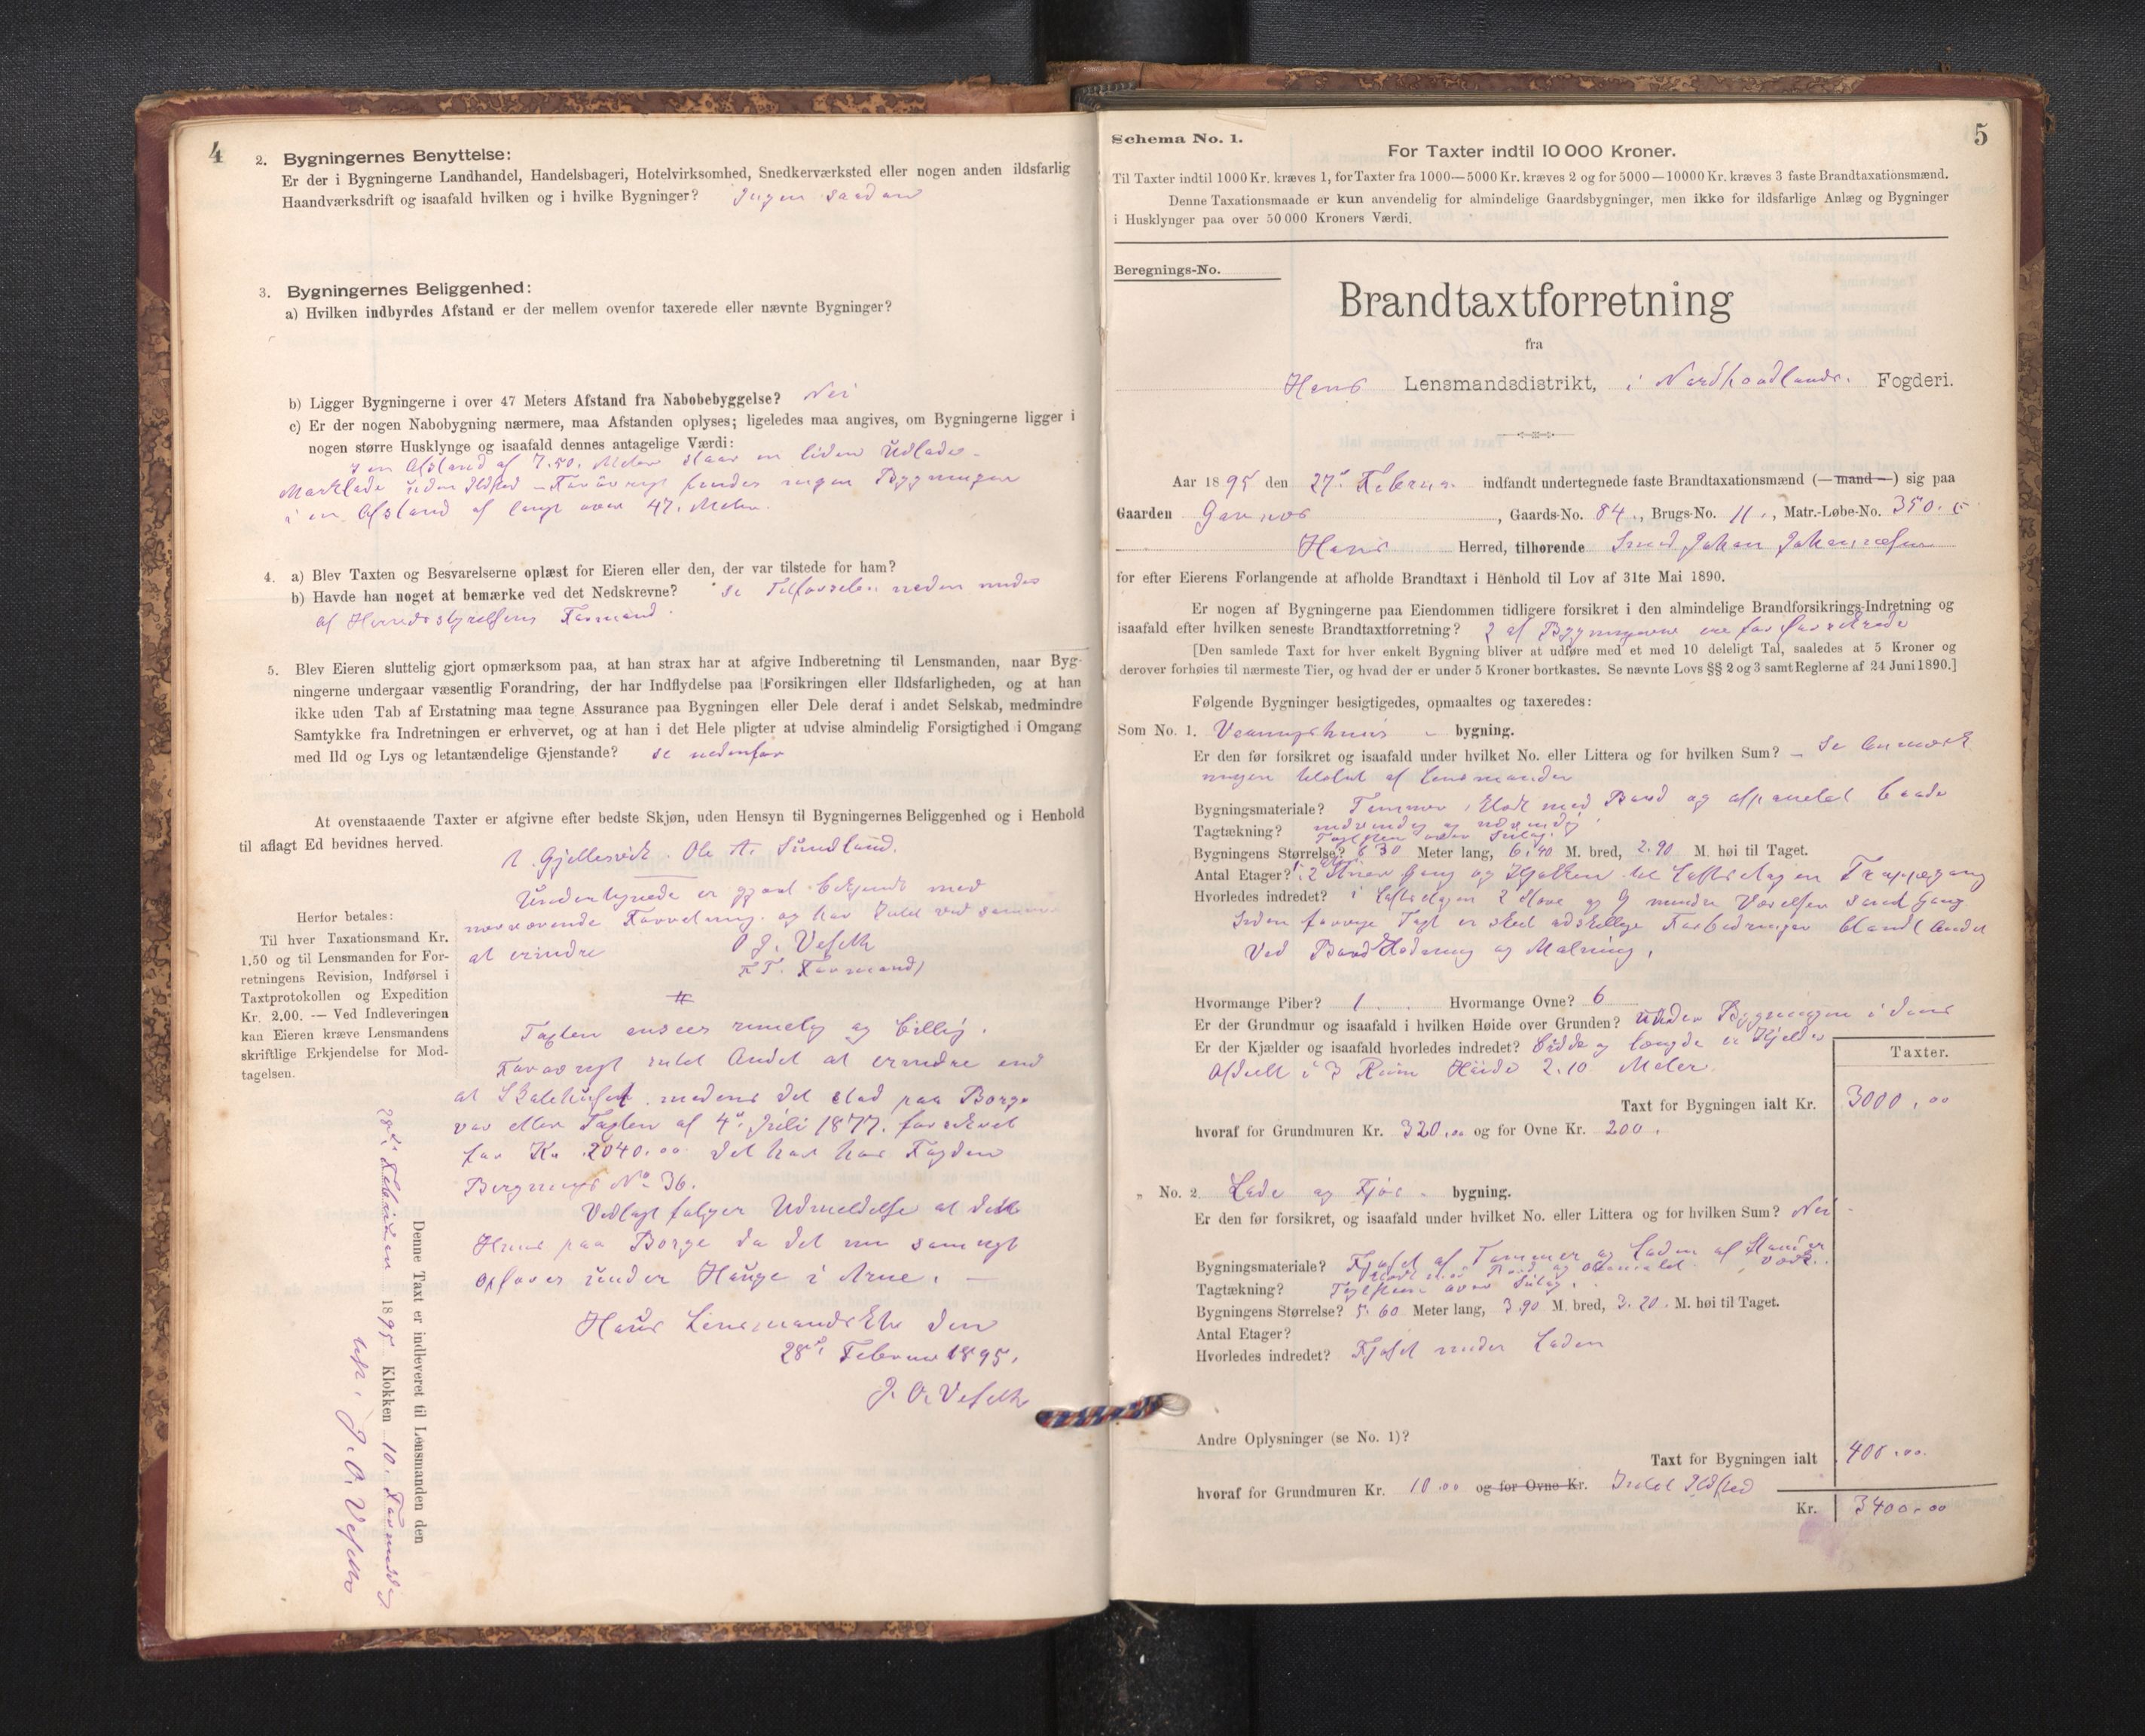 4
2. Bygningernes Benyttelse:
Er der i Bygningerne Landhandel, Handelsbageri, Hotelvirksomhed, Snedkerværksted eller nogen anden ildsfarlig
Haandværksdrift og isaafald hvilken og i hvilke Bygninger? Ingen saadan
3. Bygningernes Beliggenhed:
a) Hvilken indbyrdes Afstand er der mellem ovenfor taxerede eller nævnte Bygninger?
b) Ligger Bygningerne i over 47 Meters Afstand fra Nabobebyggelse? Nei
c) Er der nogen Nabobygning nærmere, maa Afstanden oplyses; ligeledes maa angives, om Bygningerne ligger i
nogen større Husklynge og isaafald dennes antagelige Værdi:
I en Afstand af 7.50. Meter staar en liden Udlade-
Marklade uden Ildsted - Forøvrigt findes ingen Bygninger
i en Afstand af langt over 47. Meter.
4. a) Blev Taxten og Besvarelserne oplæst for Eieren eller den, der var tilstede for ham?
b) Havde han noget at bemærke ved det Nedskrevne? se Tilførselen neden under
af Herredsstyrelsens Formand.
5. Blev Eieren sluttelig gjort opmærksom paa, at han strax har at afgive Indberetning til Lensmanden, naar Byg-
ningerne undergaar væsentlig Forandring, der har Indflydelse paa Forsikringen eller Ildsfarligheden, og at han
ikke uden Tab af Erstatning maa tegne Assurance paa Bygningen eller Dele deraf i andet Selskab, medmindre
Samtykke fra Indretningen er erhvervet, og at han i det Hele pligter at udvise almindelig Forsigtighed i Omgang
med Ild og Lys og letantændelige Gjenstande? se nedenfor
At ovenstaaende Taxter er afgivne efter bedste Skjøn, uden Hensyn til Bygningernes Beliggenhed og i Henhold
til aflagt Ed bevidnes herved.
Gjellesvik. Ole A. Sundland.
Undertegnede er gjort bekjendt med
nærværende Forretning og har Intet ved samme
at erindre
O J. Vefeth
F.T. Formand
Herfor betales:
Til hver Taxationsmand Kr.
1.50 og til Lensmanden for For-
retningens Revision, Indførsel i
Taxtprotokollen og Expedition
Kr. 2.00. — Ved Indleveringen
kan Eieren kræve Lensmandens
skriftlige Erkjendelse for Mod-
tagelsen.
#
Taxten ansees rimelig og billig.
Forøvrigt intet Andet at erindre end
at medens det stod paa Borge
var efter Taxten af 4de Juli 1877. forsikret
for Kr 2040.00 det har hos Fogden
Bergnings No 36.
Vedlagt følger Udmeldelse at dette
Huus paa Borge da det nu
opføres under Hauge i Arne. —
Haus Lensmandsk den
28de Februar 1895.
J. O. Vefeth
Denne Taxt er indleveret til Lensmanden den
28de Februar 1895 Klokken 10. Formiddag
J. O. Vefeth
5
Schema No. 1.
For Taxter indtil 10 000 Kroner.
Til Taxter indtil 1000 Kr. kræves 1, for Taxter fra 1000—5000 Kr. kræves 2 og for 5000—10000 Kr. kræves 3 faste Brandtaxationsmænd.
Denne Taxationsmaade er kun anvendelig for almindelige Gaardsbygninger, men ikke for ildsfarlige Anlæg og Bygninger
i Husklynger paa over 50 000 Kroners Værdi.
Beregnings-No.
Brandtaxtforretning
fra
Haus Lensmandsdistrikt, i Nordhordlands. Fogderi.
Aar 1895 den 27de Februar indfandt undertegnede faste Brandtaxationsmænd (—mand—) sig paa
Gaarden Garnes, Gaards-No. 84., Brugs-No. 11., Matr.-Løbe-No. 350. c
Haus Herred, tilhørende Smed Johan Johannesen
for efter Eierens Forlangende at afholde Brandtaxt i Henhold til Lov af 31te Mai 1890.
Er nogen af Bygningerne paa Eiendommen tidligere forsikret i den almindelige Brandforsikrings-Indretning og
isaafald efter hvilken seneste Brandtaxtforretning? 2 af Bygningerne ere før forsikrede
[Den samlede Taxt for hver enkelt Bygning bliver at udføre med et med 10 deleligt Tal, saaledes at 5 Kroner og
derover forhøies til nærmeste Tier, og hvad der er under 5 Kroner bortkastes. Se nævnte Lovs §§ 2 og 3 samt Reglerne af 24 Juni 1890.]
Følgende Bygninger besigtigedes, opmaaltes og taxeredes:
Som No. 1. Vaaningshuus - bygning.
Er den før forsikret og isaafald under hvilket No. eller Littera og for hvilken Sum? — Se Anmærk
ningen af Lensmanden
Bygningsmateriale? Tømmer, klædt med Bord og afpanelet baade
indvendig og udvendig
Tagtækning? Taglsten over Sutag.
Bygningens Størrelse? 8 30 Meter lang, 6,40 M. bred, 2.90 M. høi til Taget.
Antal Etager? 1. 2 Stuer Gang og Kjøkken til Loftsetagen Trappegang
Hvorledes indredet? i Loftsetagen 2 Store og 2 mindre Værelser samt Gang
Siden forrige Taxt er sked adskillige Forbedringer blandt Andet
ved Bordklædning og Malning.
Hvormange Piber? 1 . . Hvormange Ovne? 6
Er der Grundmur og isaafald i hvilken Høide over Grunden? under Bygningen i dens
Er der Kjælder og isaafald hvorledes indredet? Bredde og Længde er Kjelder
Afdeelt i 3 Rum Høide 2.10 Meter.
Taxter.
Taxt for Bygningen ialt Kr. 3000,00
hvoraf for Grundmuren Kr. 320.00 og for Ovne Kr. 200.
„ No. 2 Lade og Fjøs - bygning.
Er den før forsikret, og isaafald under hvilket No. eller Littera og for hvilken Sum? Nei -
Bygningsmateriale? Fjøset af Tømmer og Laden af Stavær
klædt med Bord og
Tagtækning? Taglsten over Sutag.
Bygningens Størrelse? 5.60 Meter lang, 3.90 M. bred, 3.20. M. høi til Taget.
Antal Etager?
Hvorledes indredet? Fjøset under Laden
Andre Oplysninger (se No. 1)?
Taxt for Bygningen ialt 400.00.
hvoraf for Grundmuren Kr. 10.00 og for Ovne Kr. Intet Ildsted
Kr. 3400.00